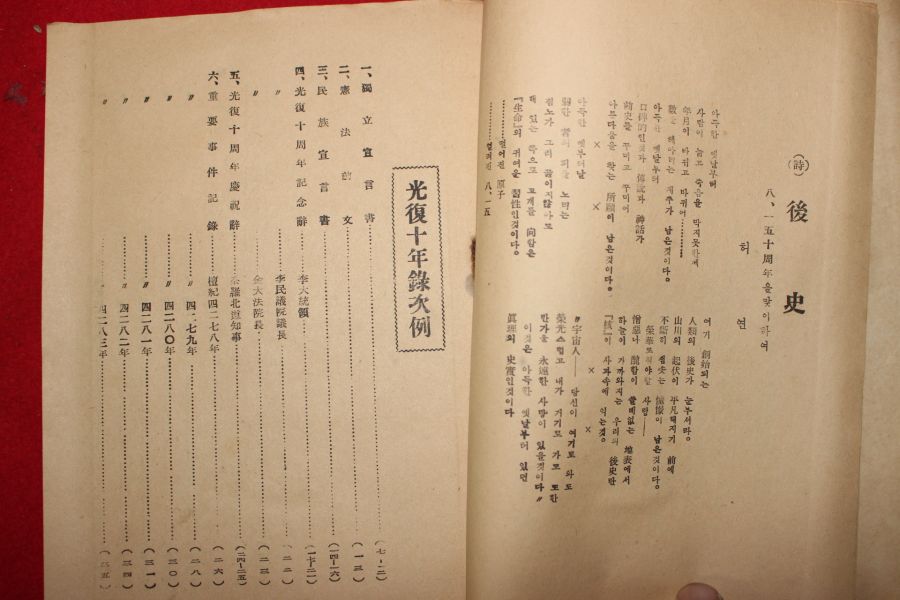 (詩) 後史
八、一五十周年을맞이하여
허 연
아득한 옛날부터
사람이 늙고 죽음을 막지못한채
年月이 바뀌고 바뀌어…………
數를 헤아리는 재주가 남은것이다。
아득한 옛날부터
口碑的인것과 傳說과 神話가
前史를 꾸미고 꾸미어
아름다움을 찾는 所願이 남은것이다。
× ×
아득한 옛부터날
弱한 者이 피를 노리는
젊노가 그리 곯이지않아도
해 있는 쪽으로 고개를 向함은
「生命」의 귀여운 習性인것이다。
…………떨어진 原子
…………결려진 八、一五
여기 創始되는
人類의 後史가 눈부셔라。
山川의 起伏이 平凡해지기 前에
不斷히 샘솟는 憧憬이 남은것이다。
榮華로워야할 사람——
憎惡나 醜함이 쓸데없는 地表에서
하늘이 가까와지는 우리의 後史란
「核」이 사과속에 익는것。
× ×
〃宇宙人—— 당신이 여기로 와도
榮光스럽고 내가 거기로 가고 또한
반가울 永遠한 사랑이 있을것이다〃
이것은 아득한 옛날부터 있던
眞理의 史實인것이다
光復十年錄次例
一、獨立宣言書…………(七-一二)
二、憲法前文…………(一三)
三、民族宣言書…………(一四-一六)
四、光復十周年記念辭…………李大統領…………(一七-二一)
〃…………李民議院議長…………(二二)
〃…………金大法院長…………(二三)
五、光復十周年慶祝辭…………全羅北道知事…………(二四-二五)
六、重要事件記錄…………檀紀四二七八年…………(二六)
〃…………〃四二七九年…………(二八)
〃…………〃四二八〇年…………(三〇)
〃…………〃四二八一年…………(三一)
〃…………〃四二八二年…………(三四)
〃…………〃四二八三年…………(三五)